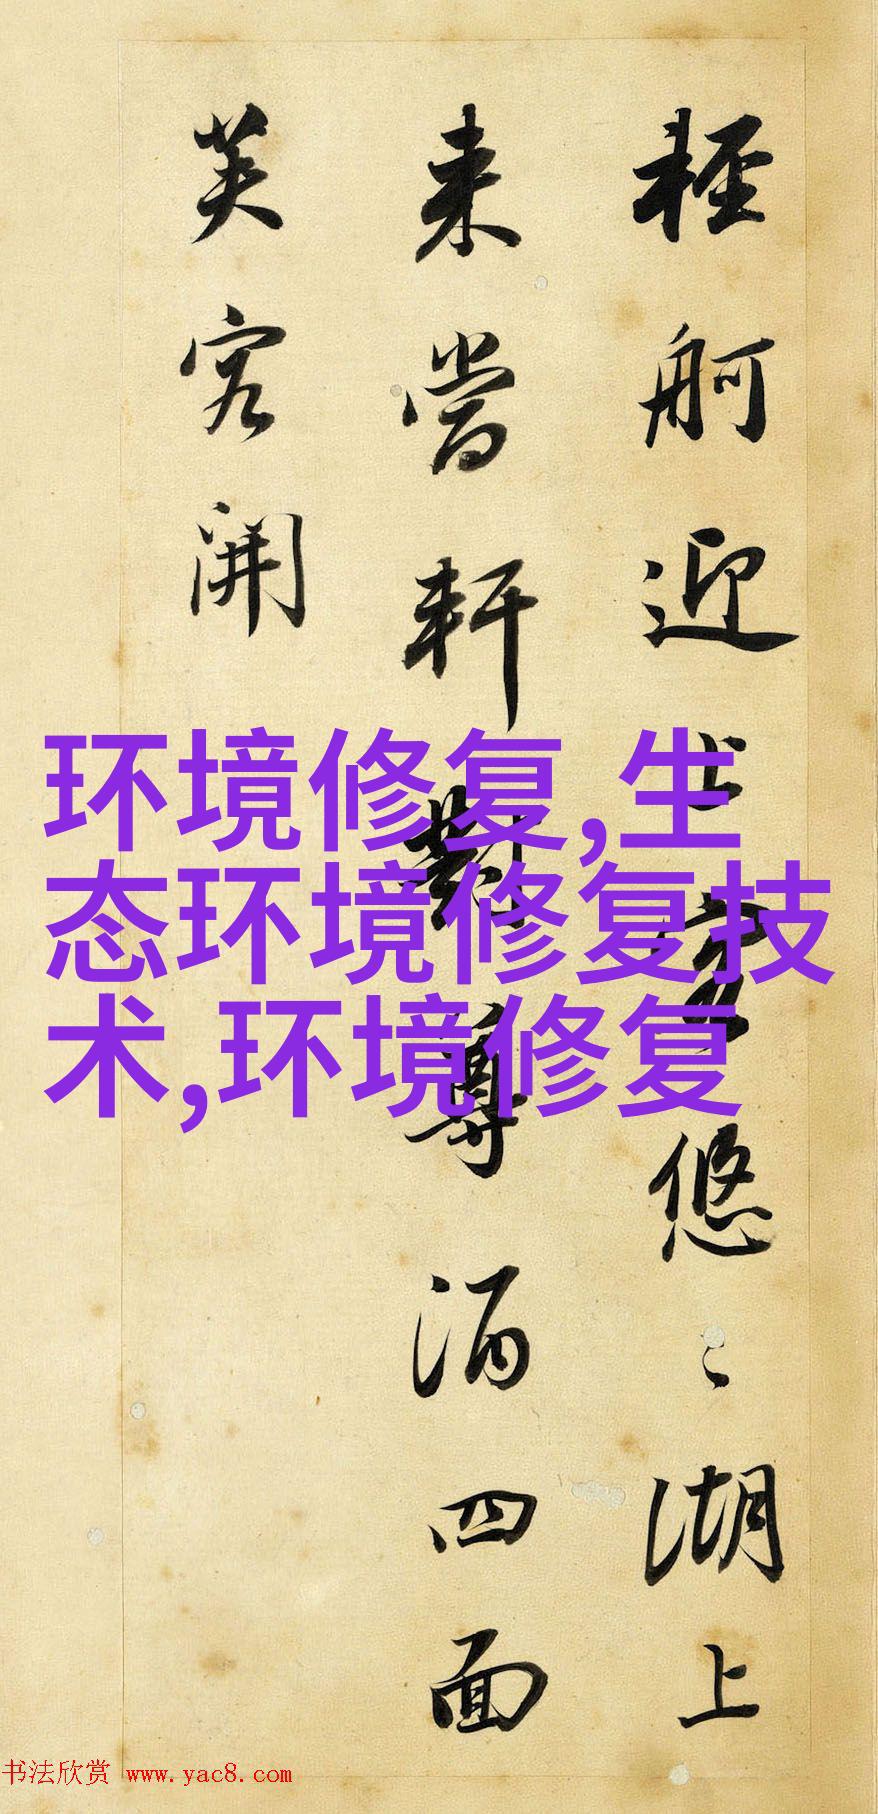 輕舸迎上客悠々湖上
来當軒對尊酒四面
芙容開
环境修复,生
态环境修复技
术,环境修复
书法欣赏 www.yac8.com